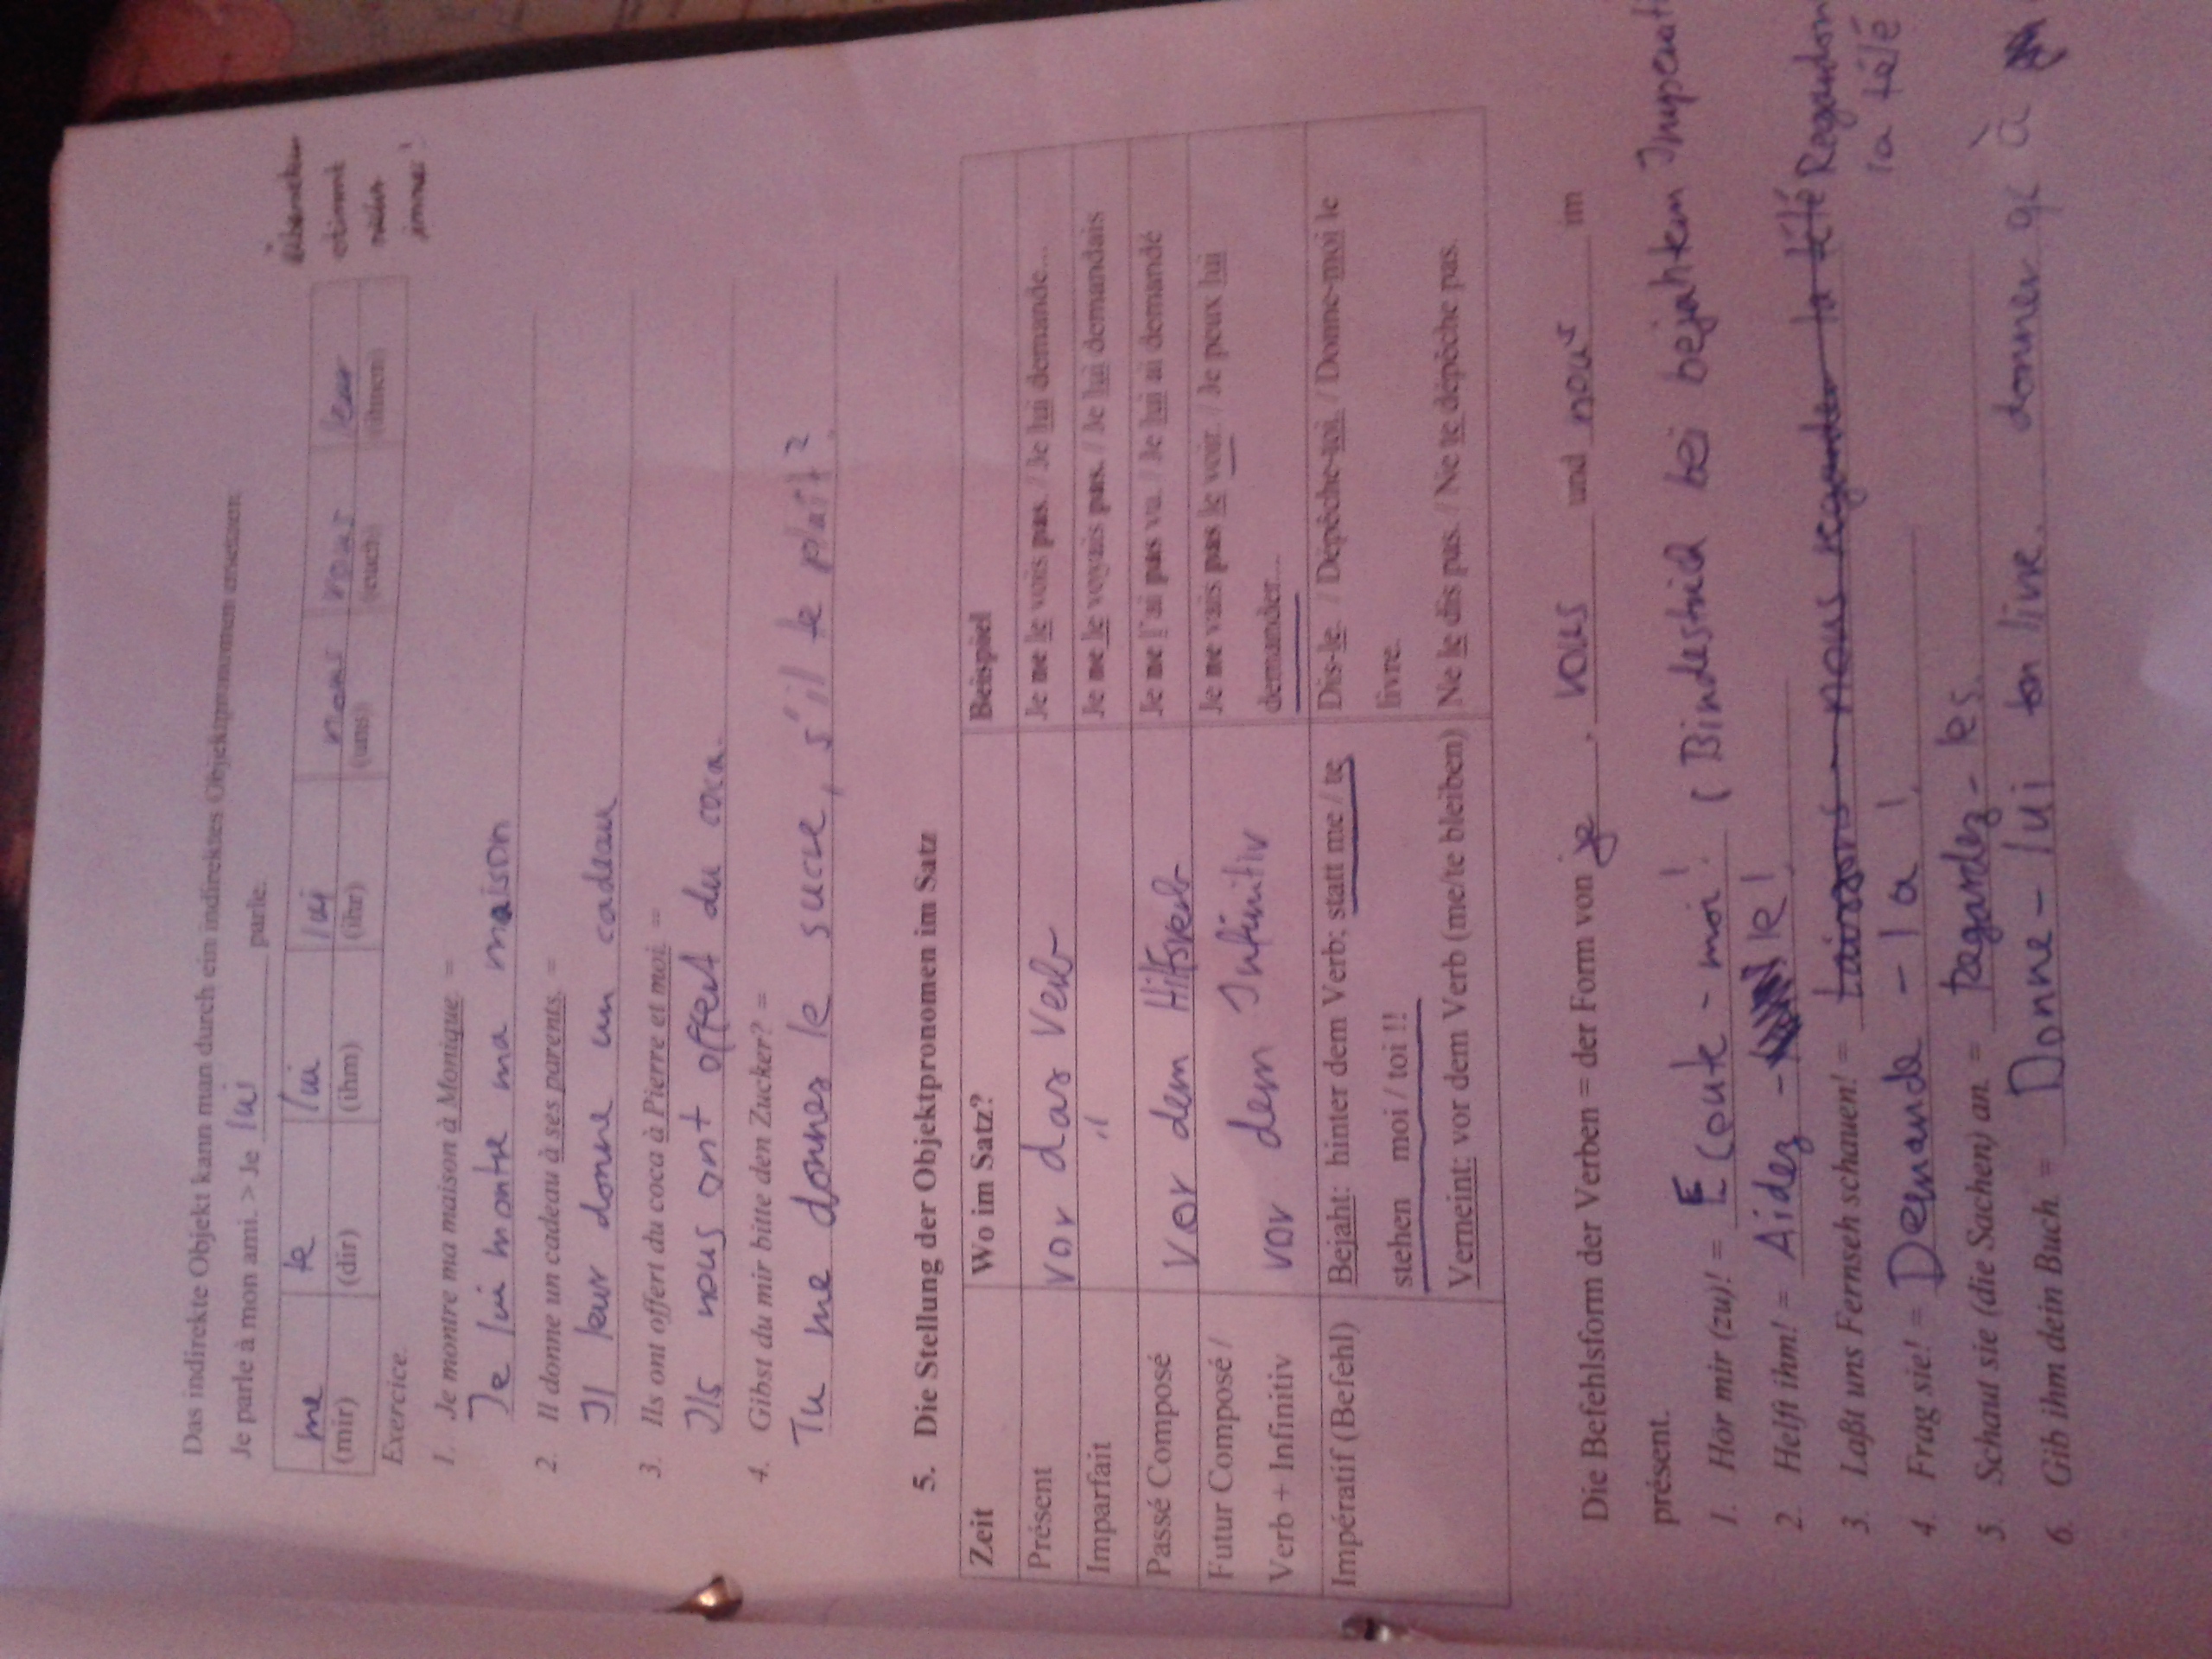 Das indirekte Objekt kann man durch ein indirektes Objektpronomen ersetzen.
Je parle à mon ami. > Je lui parle.
me te lui lui nous vous leur
(mir) (dir) (ihm) (ihr) (uns) (euch) (ihnen)
stimmt
immer!
Exercice.
1. Je montre ma maison à Monique. =
Je lui montre ma maison
2. Il donne un cadeau à ses parents. =
Il leur donne un cadeau
3. Ils ont offert du coca à Pierre et moi. =
Ils nous ont offert du coca.
4. Gibst du mir bitte den Zucker? =
Tu me donnes le sucre, s'il te plaît?
5. Die Stellung der Objektpronomen im Satz
Zeit Wo im Satz? Beispiel
Présent vor das Verb Je ne le vois pas. / Je lui demande...
Imparfait " Je ne le voyais pas. / Je lui demandais
Passé Composé Vor dem Hilfsverb Je ne l'ai pas vu. / Je lui ai demandé
Futur Composé / Je ne vais pas le voir. / Je peux lui
Verb + Infinitiv vor dem Infinitiv demander...
Impératif (Befehl) Bejaht: hinter dem Verb; statt me / te Dis-le. / Dépêche-toi. / Donne-moi le
stehen moi / toi !! livre.
Verneint: vor dem Verb (me/te bleiben) Ne le dis pas. / Ne te dépêche pas.
Die Befehlsform der Verben = der Form von je, vous und nous im
présent.
1. Hör mir (zu)! = Ecoute-moi! (Bindestrich bei bejahtem
2. Helft ihm! = Aidez-le!
3. Laßt uns Fernseh schauen! = nous regarder la télé Regardons
la télé
4. Frag sie! = Demande-la!
5. Schaut sie (die Sachen) an. = Regardez-les.
6. Gib ihm dein Buch. = Donne-lui ton livre. donner qc à